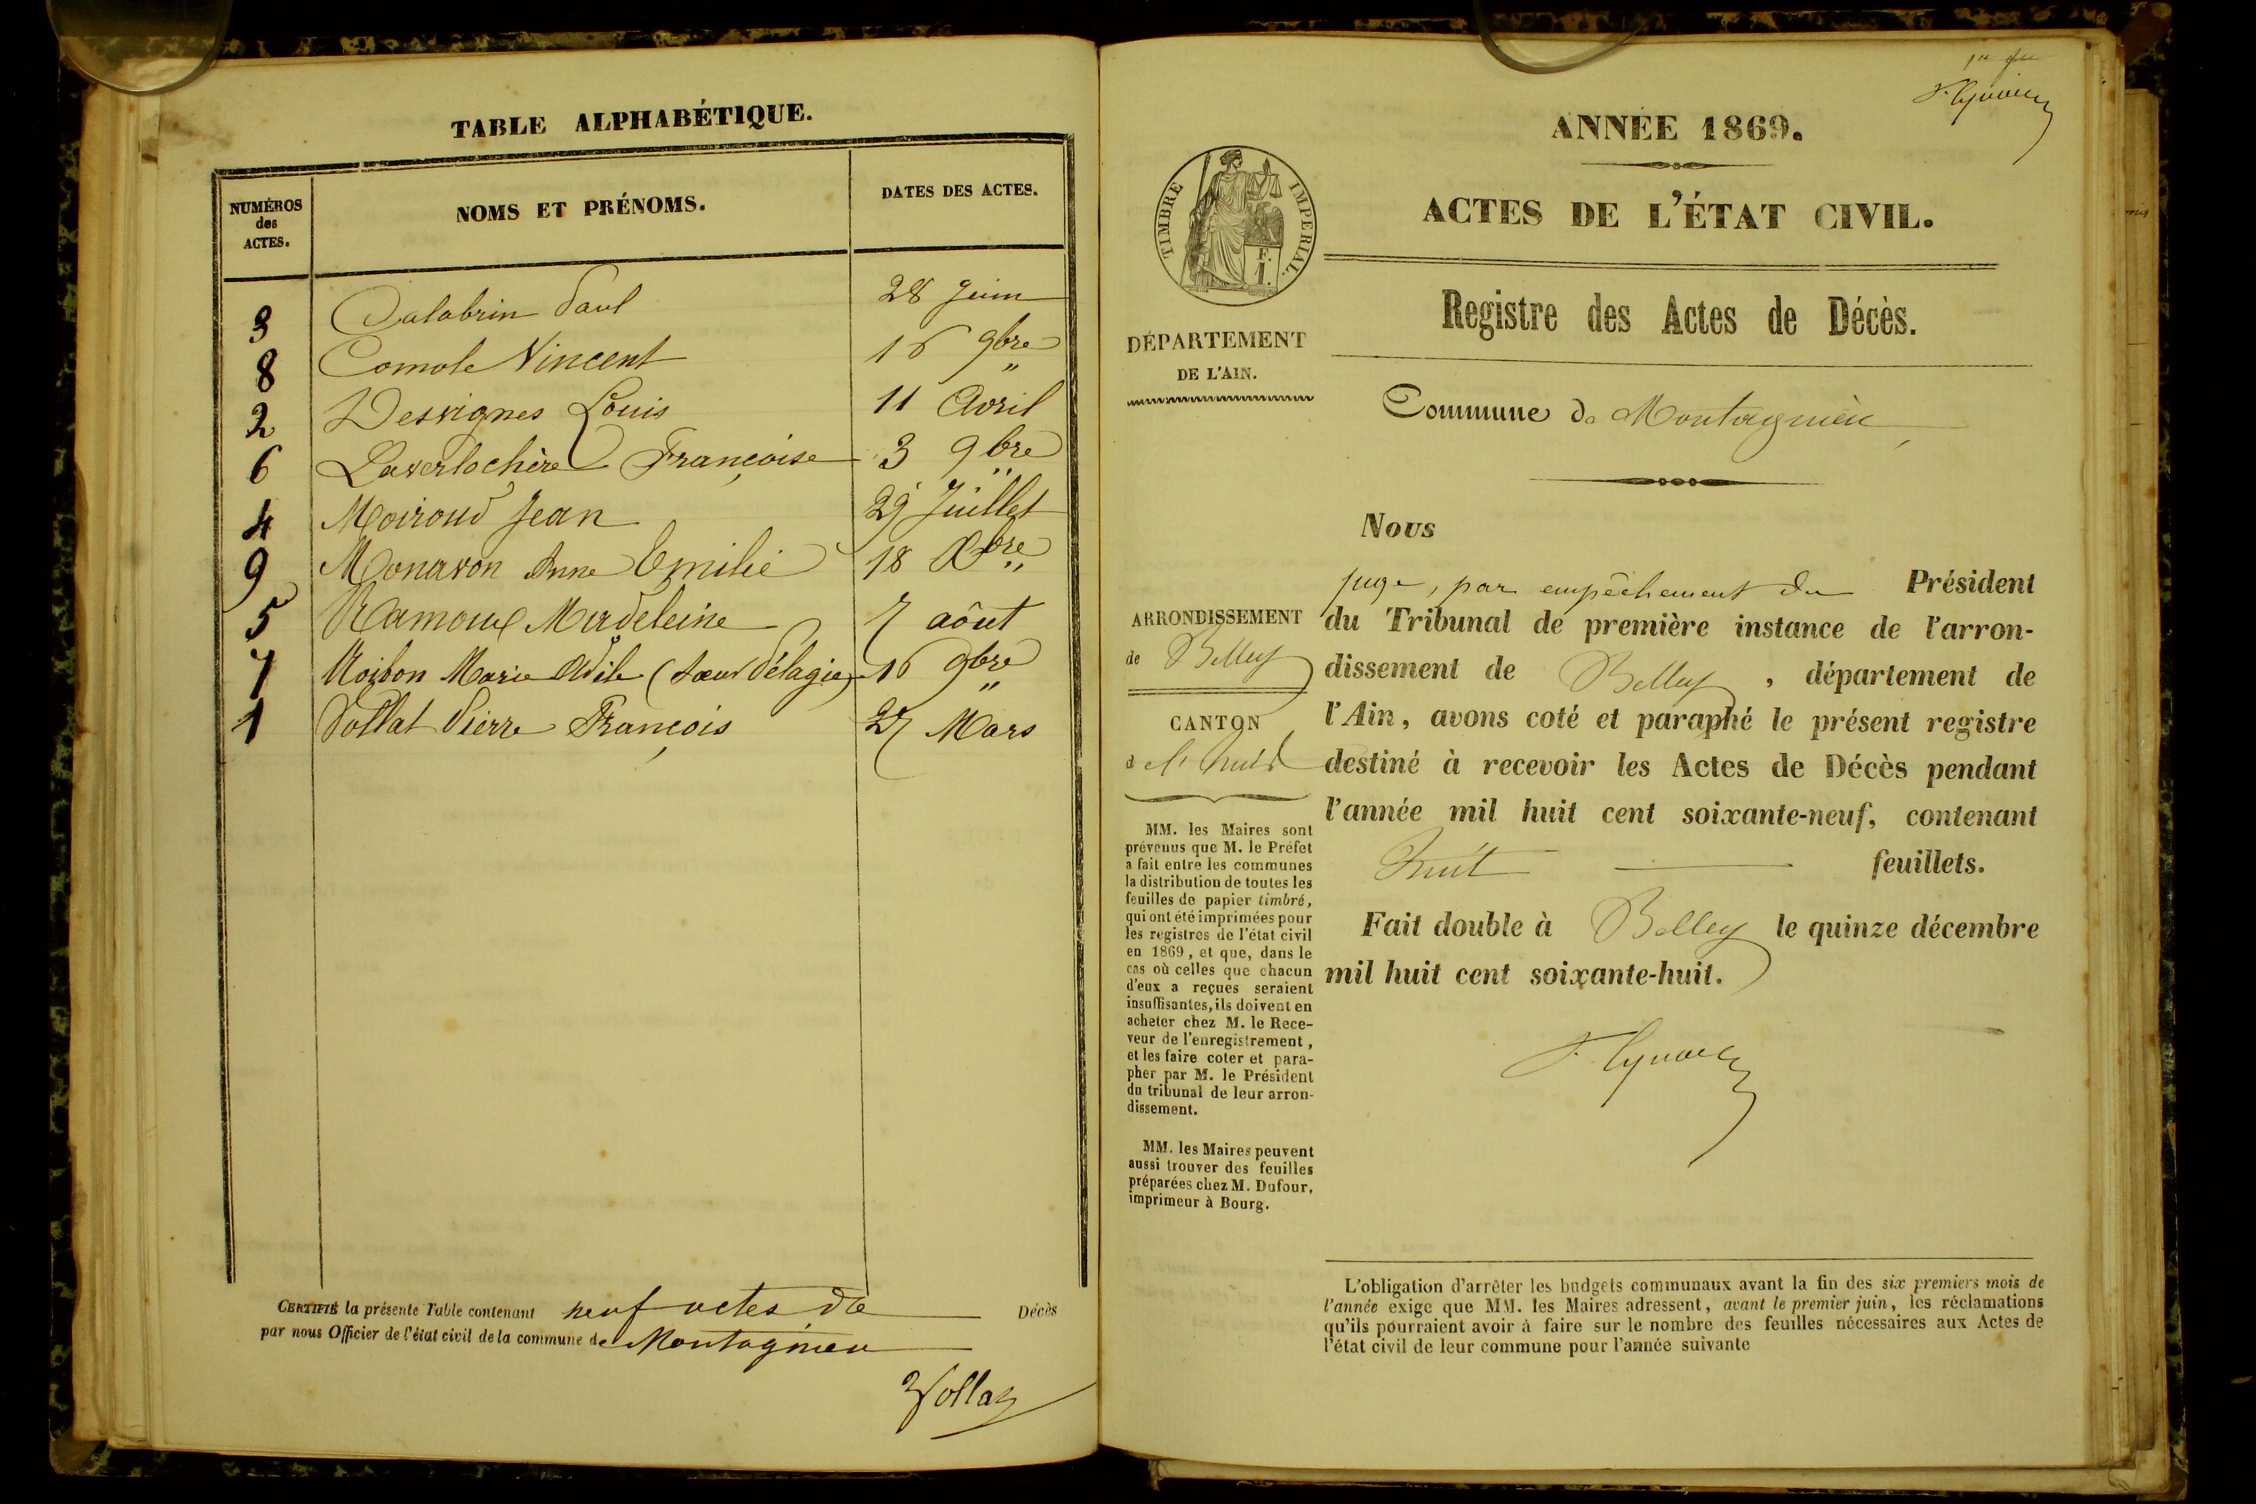 TABLE ALPHABÉTIQUE.
NUMÉROS
des
ACTES.
NOMS ET PRÉNOMS.
DATES DES ACTES.
3 Calabrin Paul 28 Juin
8 Comole Vincent 16 9bre
2 Desvignes Louis 11 Avril
6 Laverlochère Françoise 3 9bre
4 Moiroud Jean 29 Juillet
9 Monavon Anne Emilie 18 Xbre
5 Ramoux Madeleine 7 aôut
7 Roibon Marie Odile (Sœur Pélagie) 16 9bre
1 Vollat Pierre François 27 Mars
CERTIFIÉ la présente Table contenant neuf actes de Décès
par nous Officier de l'état civil de la commune de Montagnieu
Vollat
ANNÉE 1869.
ACTES DE L'ÉTAT CIVIL.
TIMBRE IMPERIAL.
F.
1.
Registre des Actes de Décès.
DÉPARTEMENT
DE L'AIN.
Commune de Montagnieu
ARRONDISSEMENT
de Belley
CANTON
de l'huis
MM. les Maires sont
prévenus que M. le Préfet
a fait entre les communes
la distribution de toutes les
feuilles de papier timbré,
qui ont été imprimées pour
les registres de l'état civil
en 1869, et que, dans le
cas où celles que chacun
d'eux a reçues seraient
insuffisantes, ils doivent en
acheter chez M. le Rece-
veur de l'enregistrement,
et les faire coter et para-
pher par M. le Président
du tribunal de leur arron-
dissement.
MM. les Maires peuvent
aussi trouver des feuilles
préparées chez M. Dufour,
imprimeur à Bourg.
Nous
juge, par empêchement du Président
du Tribunal de première instance de l'arron-
dissement de Belley, département de
l'Ain, avons coté et paraphé le présent registre
destiné à recevoir les Actes de Décès pendant
l'année mil huit cent soixante-neuf, contenant
huit feuillets.
Fait double à Belley le quinze décembre
mil huit cent soixante-huit.
L'obligation d'arrêter les budgets communaux avant la fin des six premiers mois de
l'année exige que MM. les Maires adressent, avant le premier juin, les réclamations
qu'ils pourraient avoir à faire sur le nombre des feuilles nécessaires aux Actes de
l'état civil de leur commune pour l'année suivante